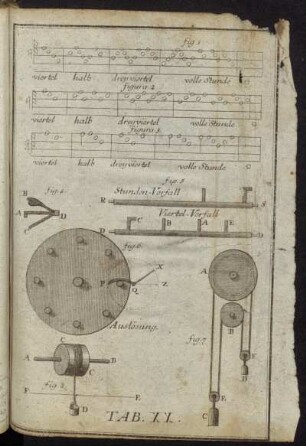 fig 1
viertel halb dreyviertel volle Stunde G
figura 2
viertel halb dreyviertel volle Stunde G
figura 3
viertel halb dreyviertel volle Stunde G
fig. 4
fig. 5
B
A D
C
Stunden-Vorfall
R S
Viertel-Vorfall
C B A E
D D
fig. 6
X
P Q Z
Auslösung.
A
B
fig. 7
E
D
C
C
A B
C
fig. 8
F E
D
TAB. XX.